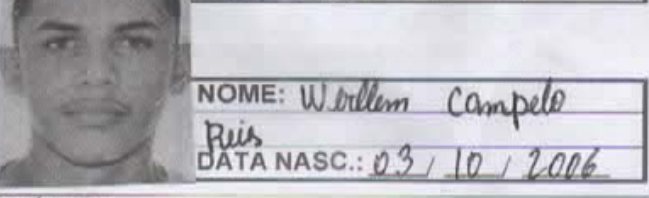 NOME: Werllem Campelo
Reis
DATA NASC.: 03 / 10 / 2006